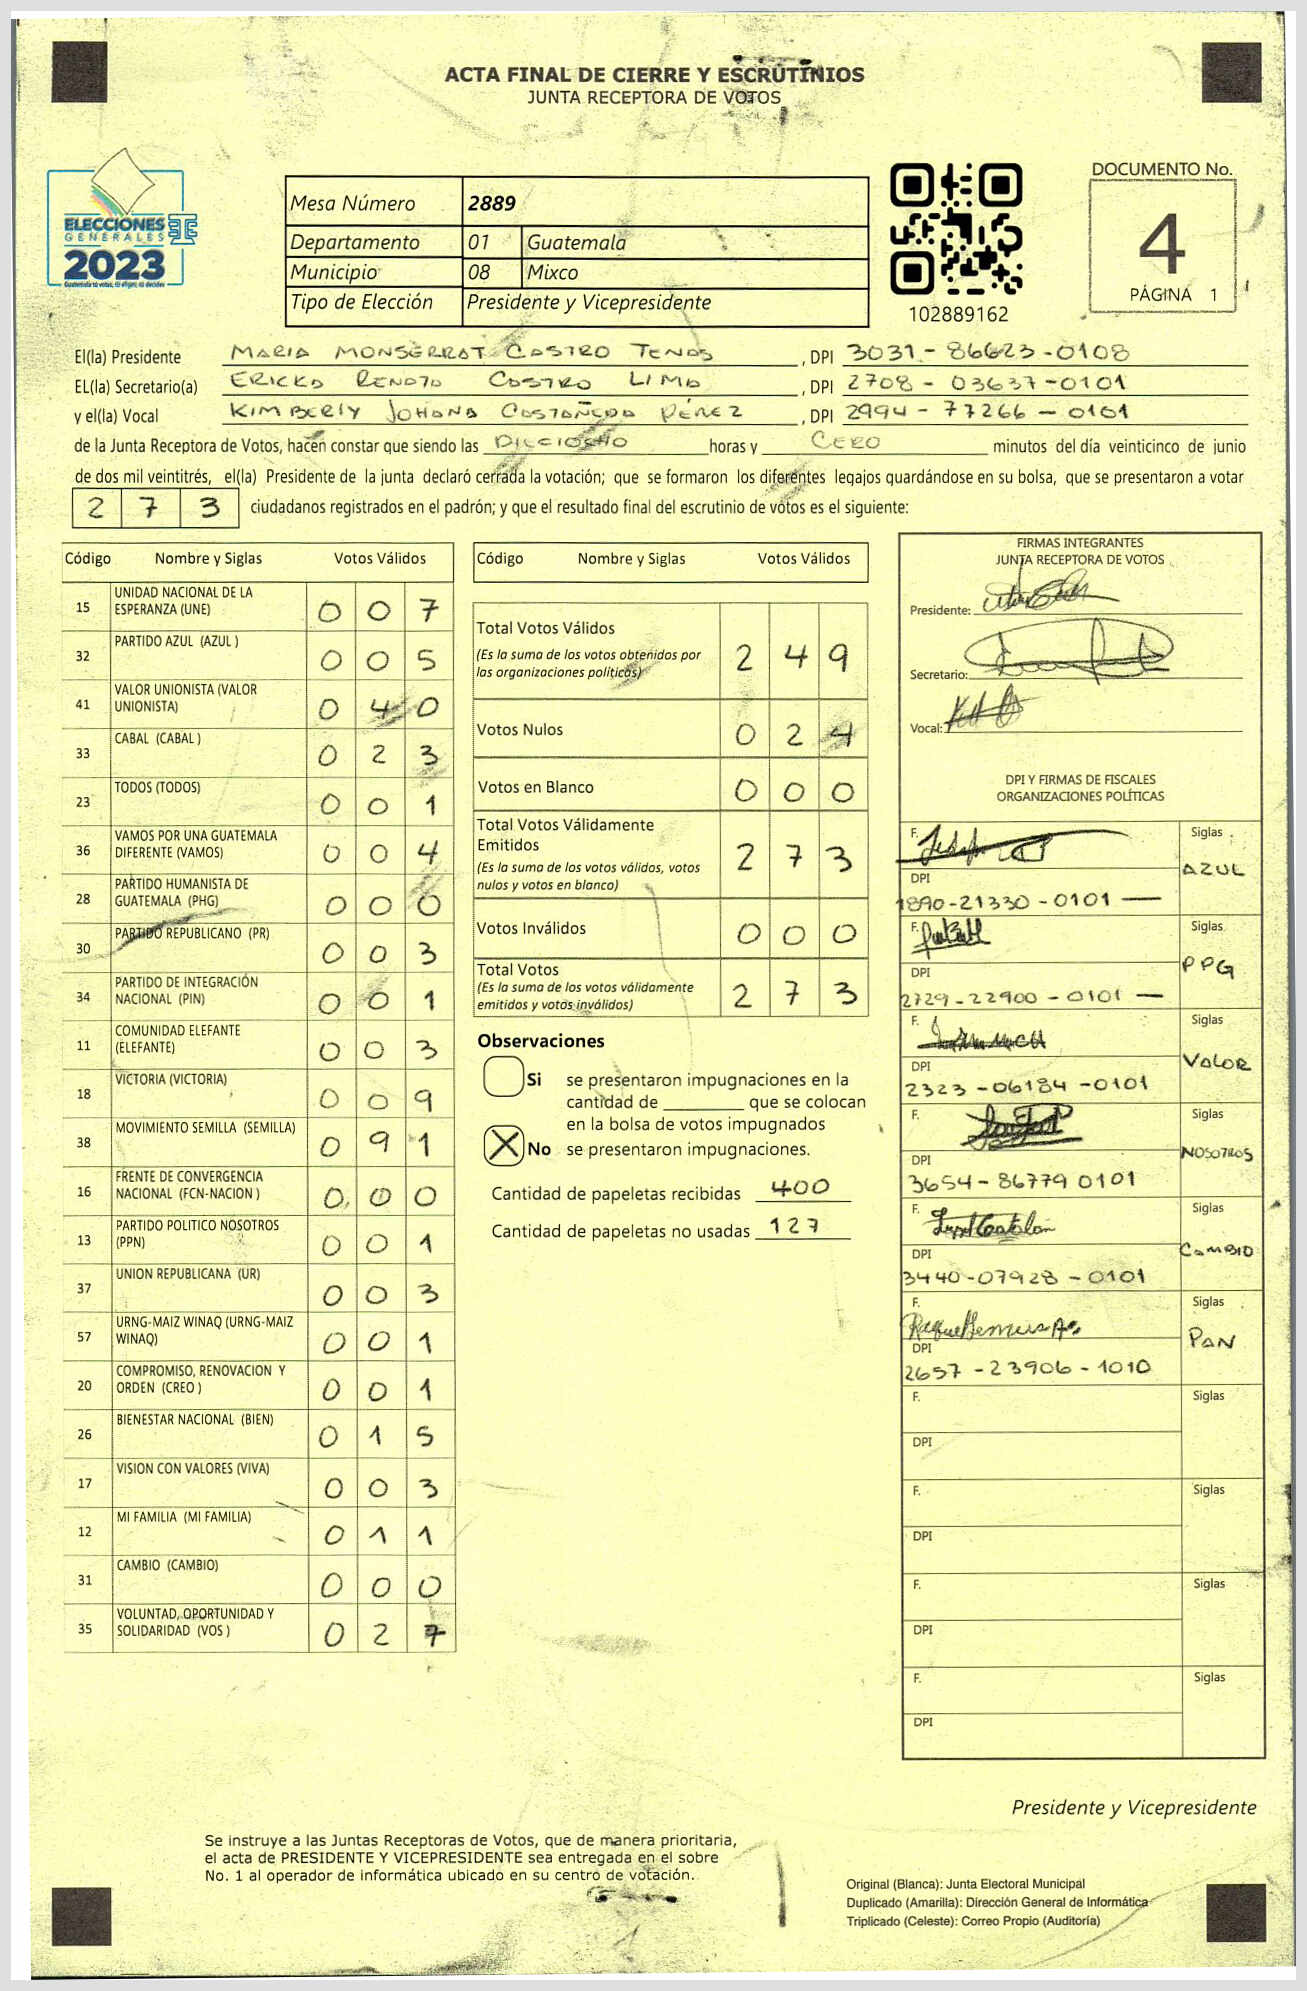 ACTA FINAL DE CIERRE Y ESCRUTINIOS
JUNTA RECEPTORA DE VOTOS
ELECCIONES
GENERALES
2023
Mesa Número 2889
Departamento 01 Guatemala
Municipio 08 Mixco
Tipo de Elección Presidente y Vicepresidente
102889162
DOCUMENTO No.
4
PÁGINA 1
El(la) Presidente MARIA MONSERRAT CASTRO TENAS, DPI 3031-86623-0108
EL(la) Secretario(a) ERICKA RENATO CASTRO LIMA, DPI 2708-03637-0101
y el(la) Vocal KIMBERLY JOHANA CASTAÑEDA PÉREZ, DPI 2994-77266-0101
de la Junta Receptora de Votos, hacen constar que siendo las DIECIOCHO horas y CERO minutos del día veinticinco de junio
de dos mil veintitrés, el(la) Presidente de la junta declaró cerrada la votación; que se formaron los diferentes legajos guardándose en su bolsa, que se presentaron a votar
273 ciudadanos registrados en el padrón; y que el resultado final del escrutinio de votos es el siguiente:
Código Nombre y Siglas Votos Válidos
15 UNIDAD NACIONAL DE LA ESPERANZA (UNE) 0 0 7
32 PARTIDO AZUL (AZUL ) 0 0 5
41 VALOR UNIONISTA (VALOR UNIONISTA) 0 4 0
33 CABAL (CABAL ) 0 2 3
23 TODOS (TODOS) 0 0 1
36 VAMOS POR UNA GUATEMALA DIFERENTE (VAMOS) 0 0 4
28 PARTIDO HUMANISTA DE GUATEMALA (PHG) 0 0 0
30 PARTIDO REPUBLICANO (PR) 0 0 3
34 PARTIDO DE INTEGRACIÓN NACIONAL (PIN) 0 0 1
11 COMUNIDAD ELEFANTE (ELEFANTE) 0 0 3
18 VICTORIA (VICTORIA) 0 0 9
38 MOVIMIENTO SEMILLA (SEMILLA) 0 9 1
16 FRENTE DE CONVERGENCIA NACIONAL (FCN-NACION ) 0 0 0
13 PARTIDO POLITICO NOSOTROS (PPN) 0 0 1
37 UNION REPUBLICANA (UR) 0 0 3
57 URNG-MAIZ WINAQ (URNG-MAIZ WINAQ) 0 0 1
20 COMPROMISO, RENOVACION Y ORDEN (CREO ) 0 0 1
26 BIENESTAR NACIONAL (BIEN) 0 1 5
17 VISION CON VALORES (VIVA) 0 0 3
12 MI FAMILIA (MI FAMILIA) 0 1 1
31 CAMBIO (CAMBIO) 0 0 0
35 VOLUNTAD, OPORTUNIDAD Y SOLIDARIDAD (VOS ) 0 2 7
Código Nombre y Siglas Votos Válidos
Total Votos Válidos 2 4 9
(Es la suma de los votos obtenidos por
las organizaciones políticas)
Votos Nulos 0 2 4
Votos en Blanco 0 0 0
Total Votos Válidamente
Emitidos 2 7 3
(Es la suma de los votos válidos, votos
nulos y votos en blanco)
Votos Inválidos 0 0 0
Total Votos 2 7 3
(Es la suma de los votos válidamente
emitidos y votos inválidos)
Observaciones
Si se presentaron impugnaciones en la
cantidad de ________ que se colocan
en la bolsa de votos impugnados
X No se presentaron impugnaciones.
Cantidad de papeletas recibidas 400
Cantidad de papeletas no usadas 127
FIRMAS INTEGRANTES
JUNTA RECEPTORA DE VOTOS
Presidente:
Secretario:
Vocal:
DPI Y FIRMAS DE FISCALES
ORGANIZACIONES POLÍTICAS
F. Siglas AZUL
DPI 1890-21330-0101
F. Siglas PPG
DPI 2729-22900-0101
F. Siglas VALOR
DPI 2323-06184-0101
F. Siglas NOSOTROS
DPI 3654-86779 0101
F. Siglas CAMBIO
DPI 3440-07928-0101
F. Siglas PAN
DPI 2657-23906-1010
F. Siglas
DPI
F. Siglas
DPI
F. Siglas
DPI
F. Siglas
DPI
Presidente y Vicepresidente
Se instruye a las Juntas Receptoras de Votos, que de manera prioritaria,
el acta de PRESIDENTE Y VICEPRESIDENTE sea entregada en el sobre
No. 1 al operador de informática ubicado en su centro de votación.
Original (Blanca): Junta Electoral Municipal
Duplicado (Amarilla): Dirección General de Informática
Triplicado (Celeste): Correo Propio (Auditoría)